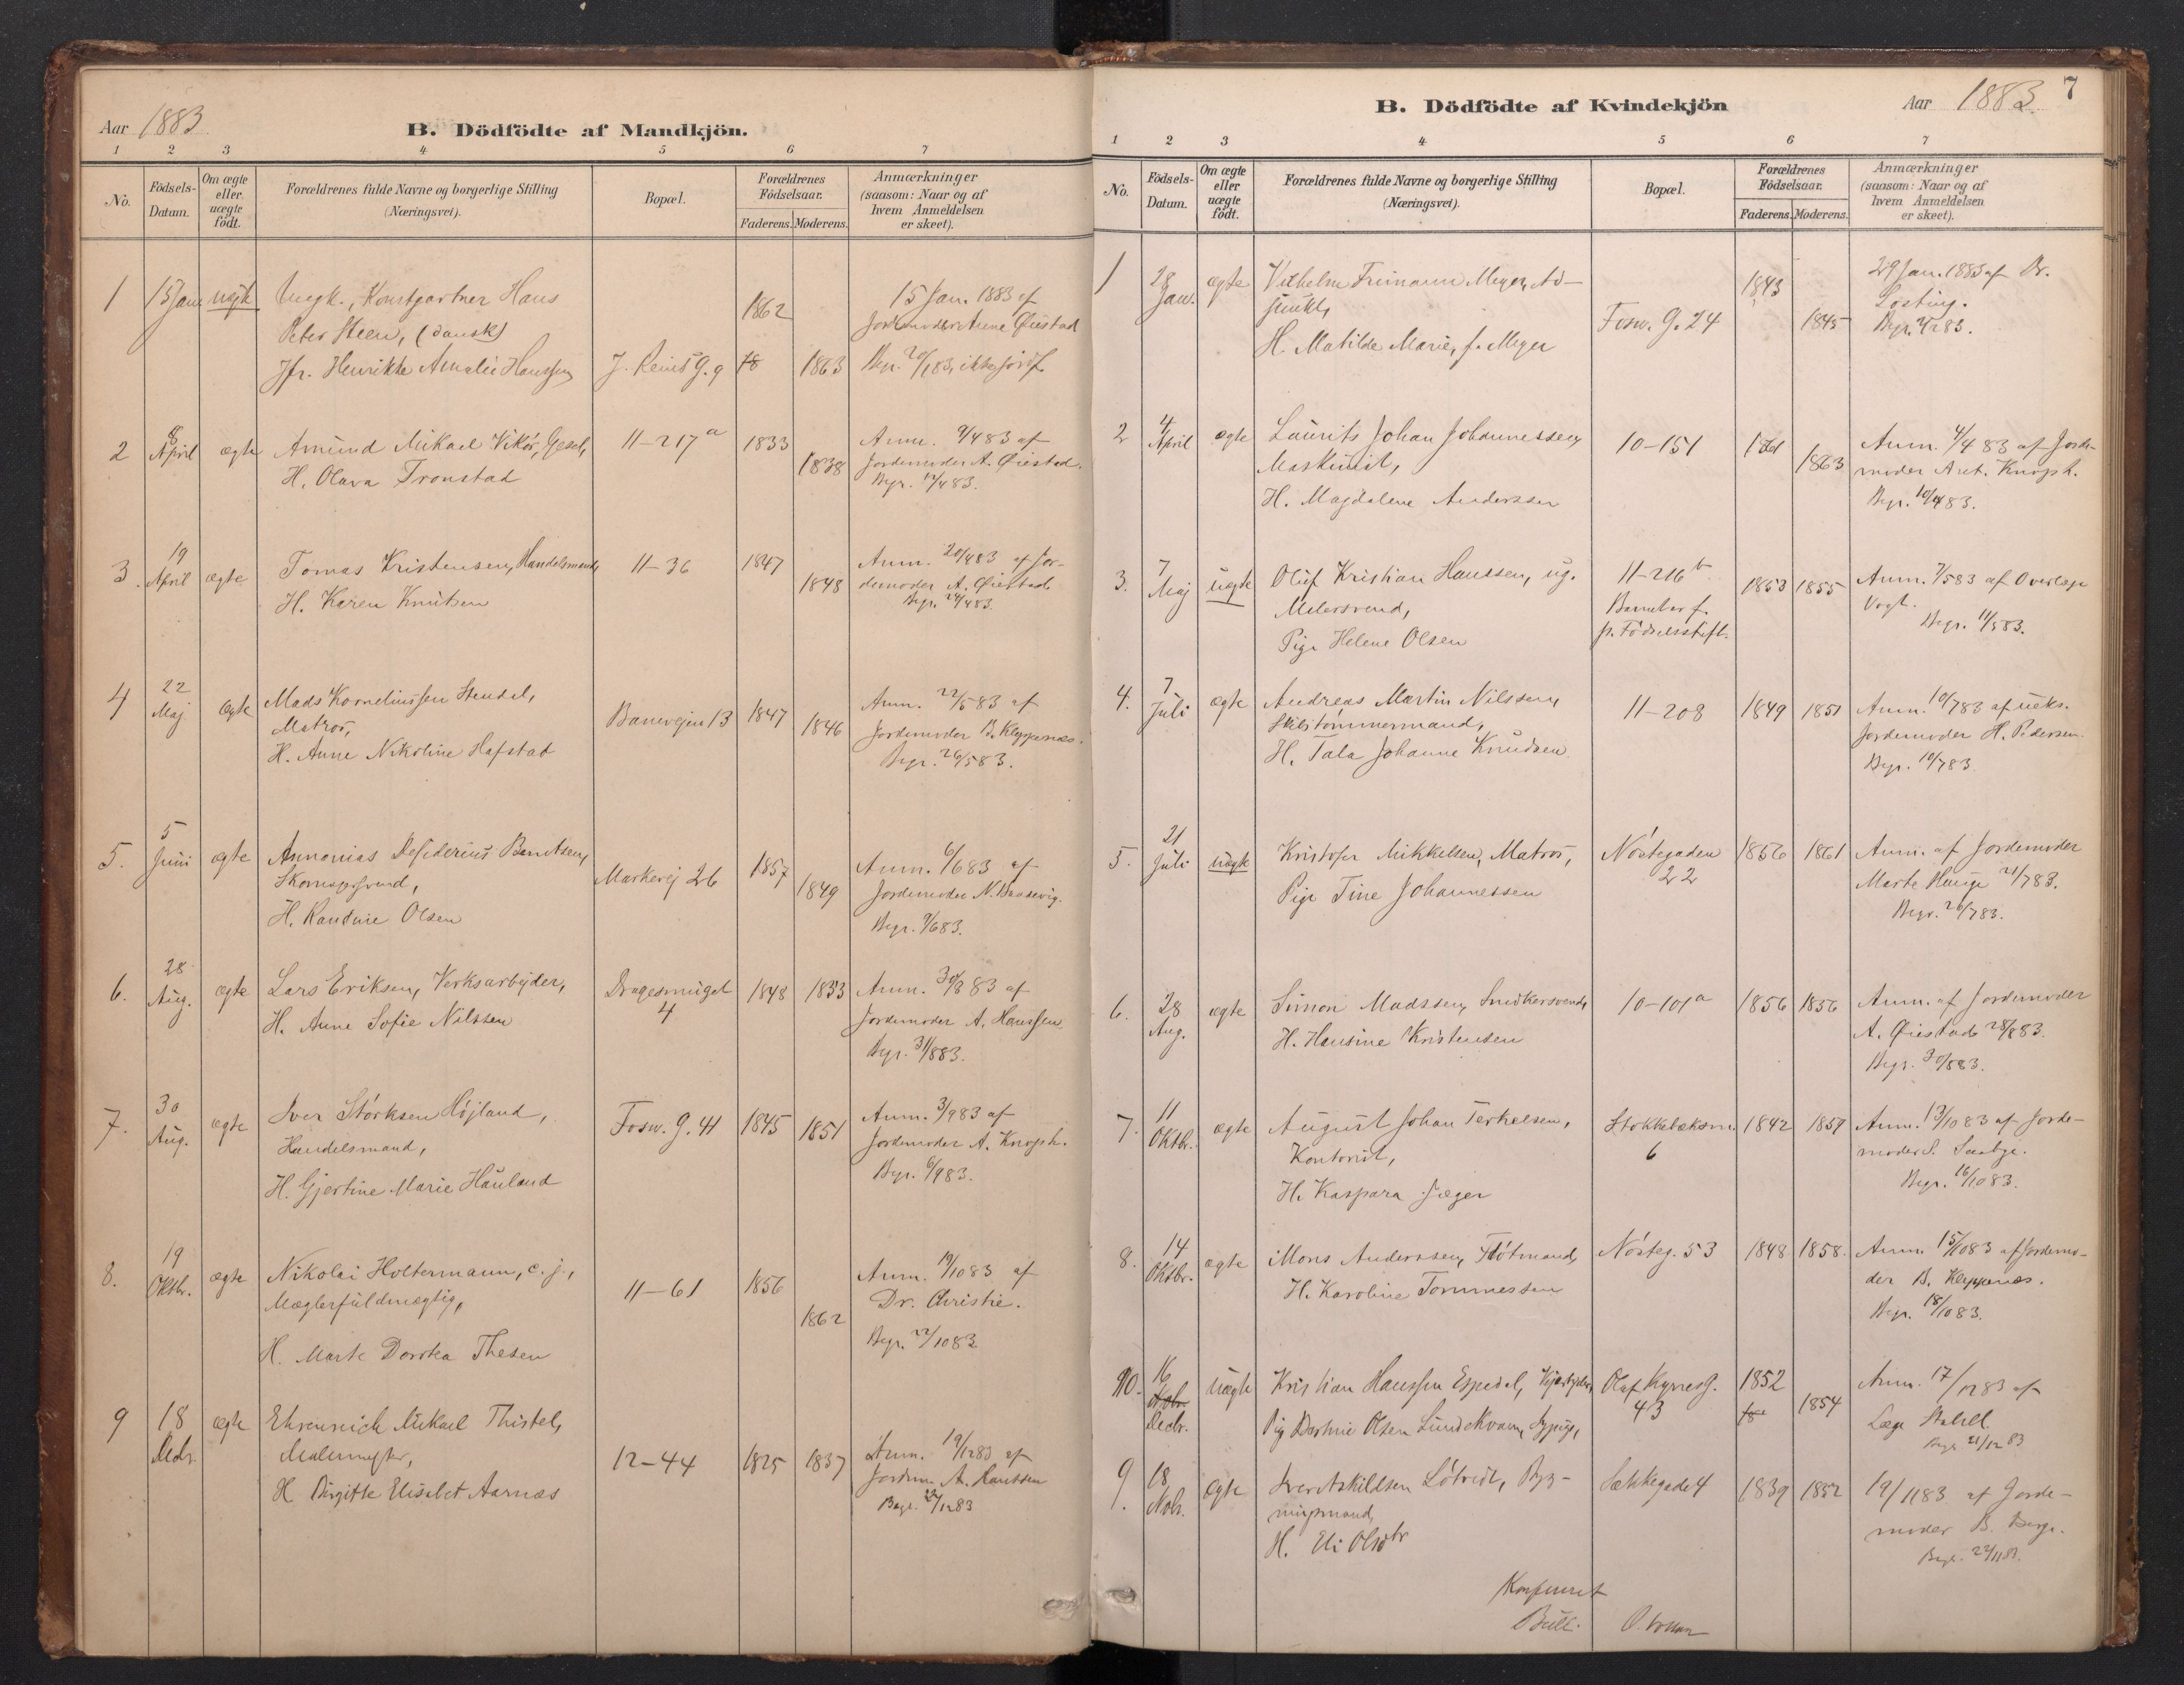 Aar 1883.
B. Dödfödte af Mandkjön.
1 2 3 4 5 6 7
No. Födsels-Datum. Om ægte eller uægte födt. Forældrenes fulde Navne og borgerlige Stilling (Næringsvei). Bopæl. Forældrenes Födselsaar. Faderens. Moderens. Anmærkninger (saasom: Naar og af hvem Anmeldelsen er skeet).
1 15 Jan uægte Ungk., Kunstgartner Hans 1862 15 Jan. 1883 af
Peter Steen, (dansk) Jordemoder Anne Øiestad
Jfr. Henrikke Amalie Hanssen J. Reuts G. 9 18 1863 Begr. 20/1 83, ikke jordf.
2 8 April ægte Amund Mikael Vikör, Gesel, 11-217a 1833 Anm. 9/4 83 af
H. Olava Tronstad 1838 Jordemoder A. Øiestad.
Begr. 12/4 83.
3. 19 April ægte Tomas Kristensen, Handelsmand, 11-36 1847 Anm. 20/4 83 af Jor-
H. Karen Knutsen 1848 demoder A. Øiestad.
Begr. 24/4 83.
4 22 Maj ægte Mads Korneliussen Stendal, Anm. 22/5 83 af
Matros, Banevejen 13 1847 1846 Jordemoder B. Kleppenæs.
H. Anne Nikoline Hafstad Begr. 26/5 83.
5. 5 Juni ægte Annanias Desiderius Berntsen, Anm. 6/6 83 af
Skomagersvend, Markevej 26 1857 1849 Jordemoder N.
H. Randine Olsen Begr. 9/6 83.
6. 28 Aug. ægte Lars Eriksen, Verksarbejder, Dragesmuget 1848 1853 Anm. 30/8 83 af
H. Anne Sofie Nilssen 4 Jordemoder A. Hanssen.
Begr. 31/8 83.
7. 30 Aug. ægte Iver Störksen Höjland, Fosw. G. 41 1845 1851 Anm. 3/9 83 af
Handelsmand, Jordemoder A. Knoph.
H. Gjertine Marie Hauland Begr. 6/9 83.
8. 19 Oktbr. ægte Nikolai Holtermann, C. j., 11-61 1856 Anm. 19/10 83 af
Mæglerfuldmægtig, 1862 Dr. Christie.
H. Marte Dorotea Thesen Begr. 22/10 83
9 18 Decbr. ægte Ehrenreich Mikael Thistel,
Malermester, 12-44 1825 1837 Anm. 19/12 83 af
H Birgitte Elisabet Aarnæs Jordem. A. Hanssen
Begr. 22/12 83
B. Dödfödte af Kvindekjön
Aar 1883. 7
1 2 3 4 5 6 7
No. Födsels-Datum. Om ægte eller uægte födt. Forældrenes fulde Navne og borgerlige Stilling (Næringsvei). Bopæl. Forældrenes Födselsaar. Faderens. Moderens. Anmærkninger (saasom: Naar og af hvem Anmeldelsen er skeet).
1 28 Jan. ægte Vilhelm Frimann Meyer, Ad- 1843 29 Jan. 1883 af Dr.
junkt, Fosw. G. 24 1845 Losting.
H. Matilde Marie, f. Meyer Begr. 2/2 83.
2 4 April ægte Laurits Johan Johannessen, 10-151 1861 1863 Anm. 4/4 83 af Jorde-
Maskinist, moder Ant. Knoph.
H. Magdalene Anderssen Begr. 10/4 83.
3. 7 Maj uægte Oluf Kristian Hanssen, ug. 11-216b 1853 1855 Anm. 7/5 83 af Overlæge
Malersvend, Barnet f. Vogt.
Pige Helene Olsen p. Födselsstift. Begr. 11/5 83.
4. 7 Juli ægte Andreas Martin Nilssen, 11-208 1849 1851 Anm. 10/7 83 af ueks.
Skibstömmermand, Jordemoder H. Pedersen.
H. Tala Johanne Knudsen Begr. 10/7 83
5. 21 Juli uægte Kristofer Mikkelsen, Matros, Nöstegaden 1856 1861 Anm. af Jordemoder
Pige Tine Johannessen 22 Marte Hauge 21/7 83.
Begr. 26/7 83.
6. 28 Aug. ægte Simon Madssen, Snedkersvend, 10-101a 1856 1856 Anm. af Jordemoder
H. Hansine Kristensen A. Øiestad 28/8 83.
Begr. 30/8 83.
7. 11 Oktbr. ægte August Johan Terkelsen, Stokkebæksm. 1842 1857 Anm. 13/10 83 af Jorde-
Kontorist, 6 moder S. Saabye.
H. Kaspara Jæger Begr. 16/10 83.
8. 14 Oktbr. ægte Mons Anderssen, Flötmand, Nösteg. 53 1848 1858. Anm. 15/10 83 af Jordemo-
H. Karoline Tommessen der B. Kleppenæs.
Begr. 18/10 83.
10. 16 Nobr. Decbr. uægte Kristian Hanssen Espedal, Olaf Kyrres G. 1852 Anm. 17/12 83 af
Pig Bertine Olsen Lundekvam, 43 18 1854 Læge
Begr. 21/12 83
9. 18 Nobr. ægte Iver Askildsen Lötveit, Byg- Sækkegade 4 1839 1852 19/11 83 af Jorde-
ningsmand, moder B. Berge.
H. Eli Olsdtr Begr. 22/11 83.
Konfereret
Bull.